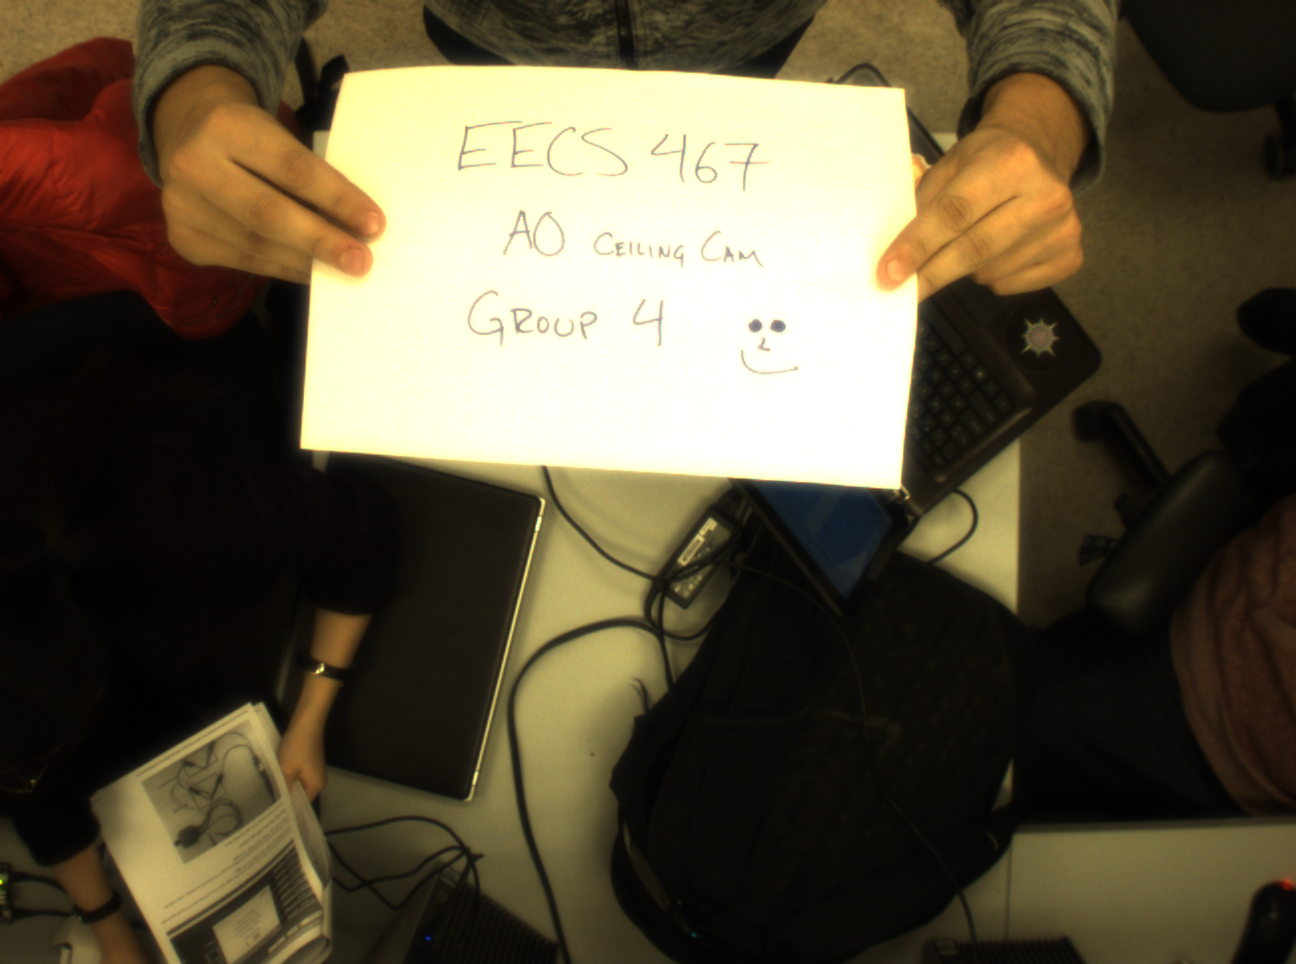 EECS 467
AO CEILING CAM
GROUP 4